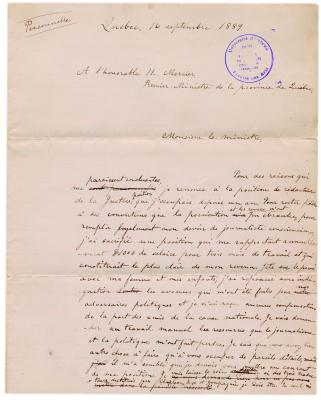 Personnelle
Québec, 14 septembre 1889.
A l'honorable H. Mercier
Premier-Ministre de la province de Québec,
Monsieur le ministre,
Pour des raisons qui
me paraissent concluantes, je renonce à la position de rédacteur
de la Justice, que j'occupais depuis un an. Pour rester fidèle
à des convictions que la persécution n'a pu ébranler, pour
remplir loyalement mon devoir de journaliste consciencieux,
j'ai sacrifié une position qui me rapportait annuelle-
ment $1000 de salaire pour trois mois de travail et qui
constituait le plus clair de mon revenu,
avec ma femme et mes enfants, j'ai repoussé avec indi-
gnation les avances qui m'ont été faites par
adversaires politiques et je n'ai reçu aucune compensation
de la part des amis de la cause nationale. Je vais deman-
der au travail manuel les ressources que le journalisme
et la politique m'ont fait perdre. Je sais que vous avez bien
autre chose à faire qu'à vous occuper de pareils détails, mais
il m'a semblé que je devais vous mettre au courant
de ma position.